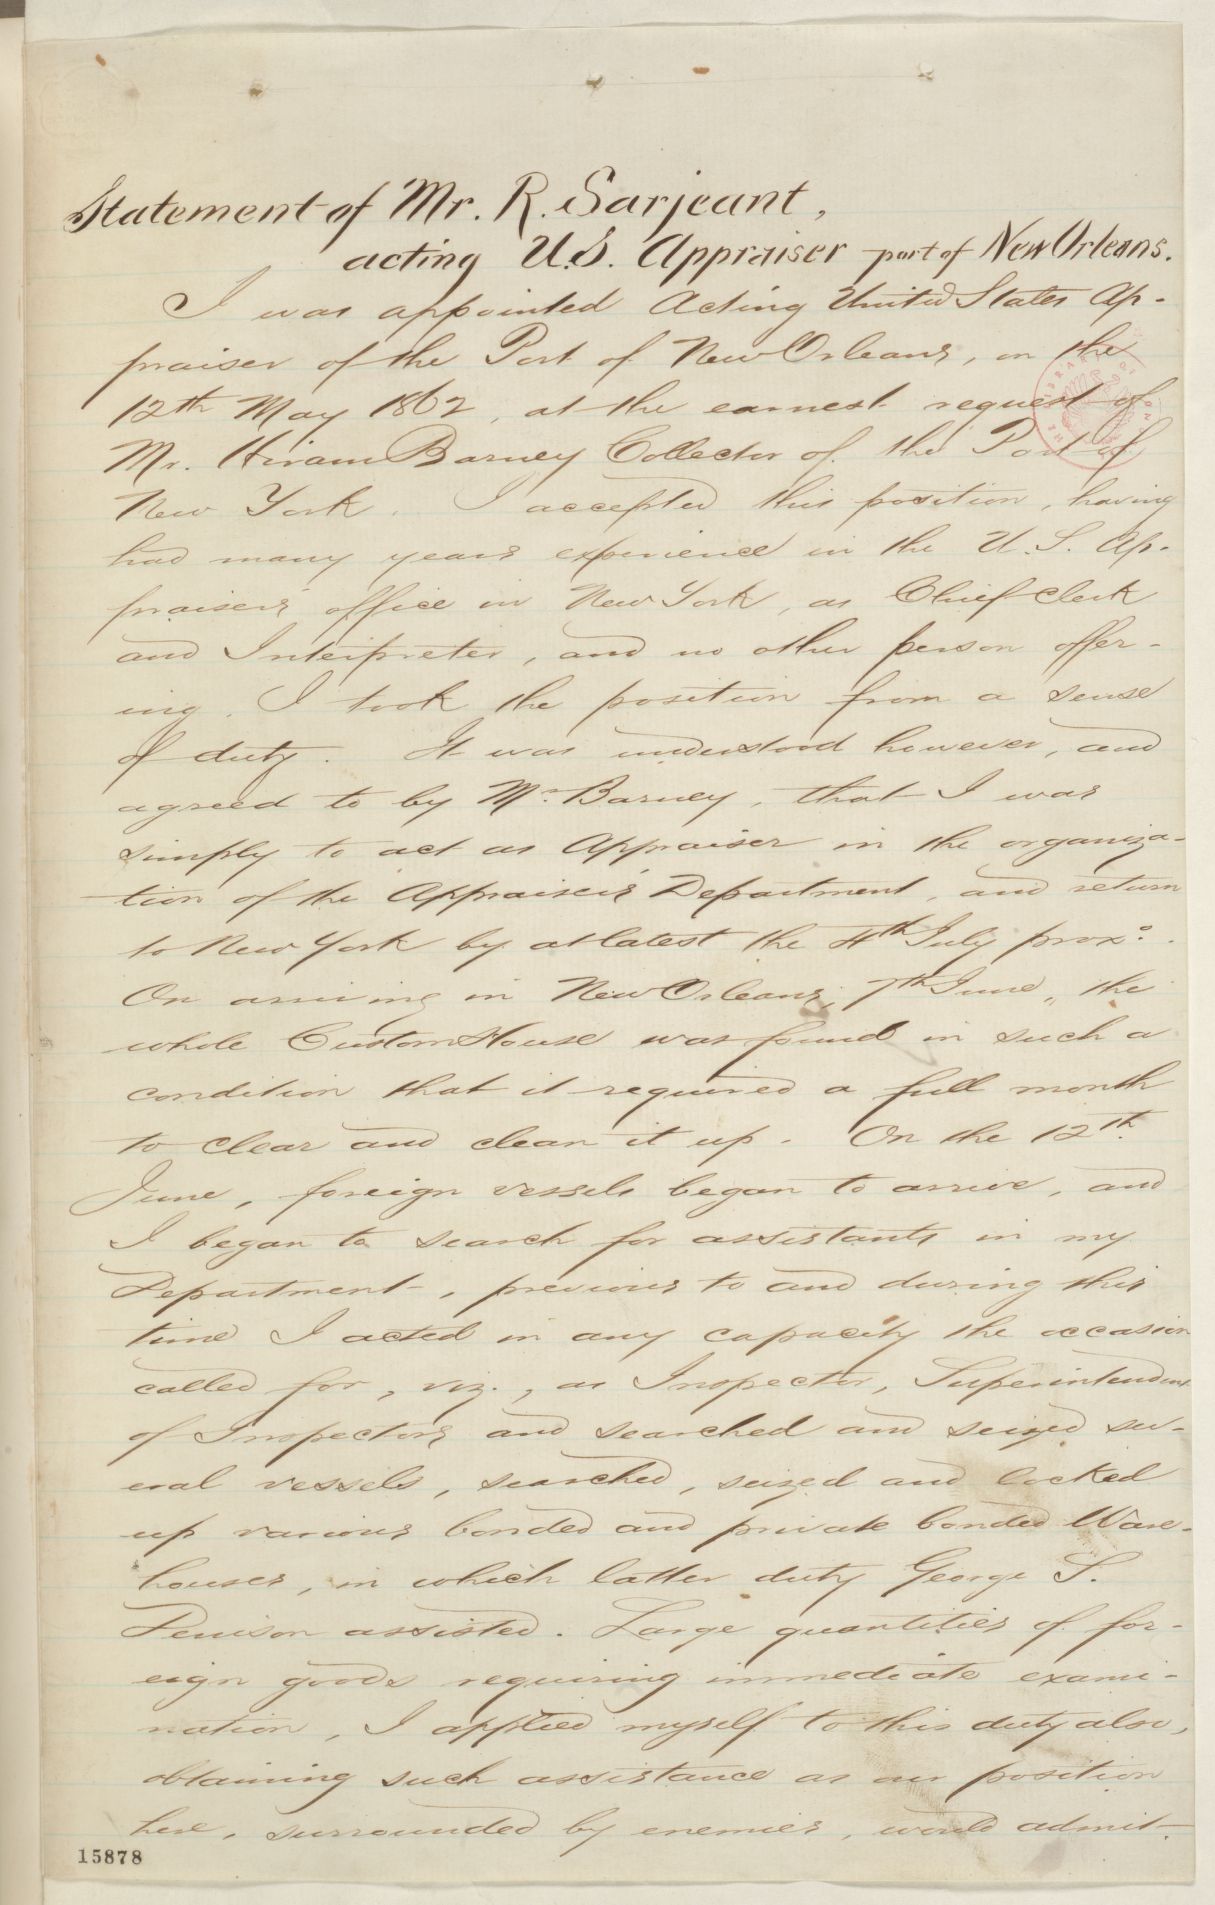 Statement of Mr. R. Sarjeant,
acting U.S. Appraiser port of New Orleans.
I was appointed Acting United States Ap-
praiser of the Port of New Orleans, on the
12th May 1862, at the earnest request of
Mr. Hiram Barney Collector of the Port of
New York. I accepted this position, having
had many years experience in the U.S. Ap-
praisers' office in New York, as Chief Clerk
and Interpreter, and no other person offer-
ing. I took the position from a sense
of duty. It was understood however, and
agreed to by Mr. Barney, that I was
simply to act as Appraiser in the organiza-
tion of the Appraiser's Department, and return
to New York by at latest the 4th July proxo.
On arriving in New Orleans, 7th June, the
whole Custom House was found in such a
condition that it required a full month
to clear and clean it up. On the 12th
June, foreign vessels began to arrive, and
I began to search for assistants in my
Department, previous to and during this
time I acted in any capacity the occasion
called for, viz., as Inspector, Superintendent
of Inspectors and searched and seized sev-
eral vessels, searched, seized and locked
up various bonded and private bonded Ware-
houses, in which latter duty George S.
Denison assisted. Large quantities of for-
eign goods requiring immediate exami-
nation, I applied myself to this duty also,
obtaining such assistance as our position
here, surrounded by enemies, would admit.
15878